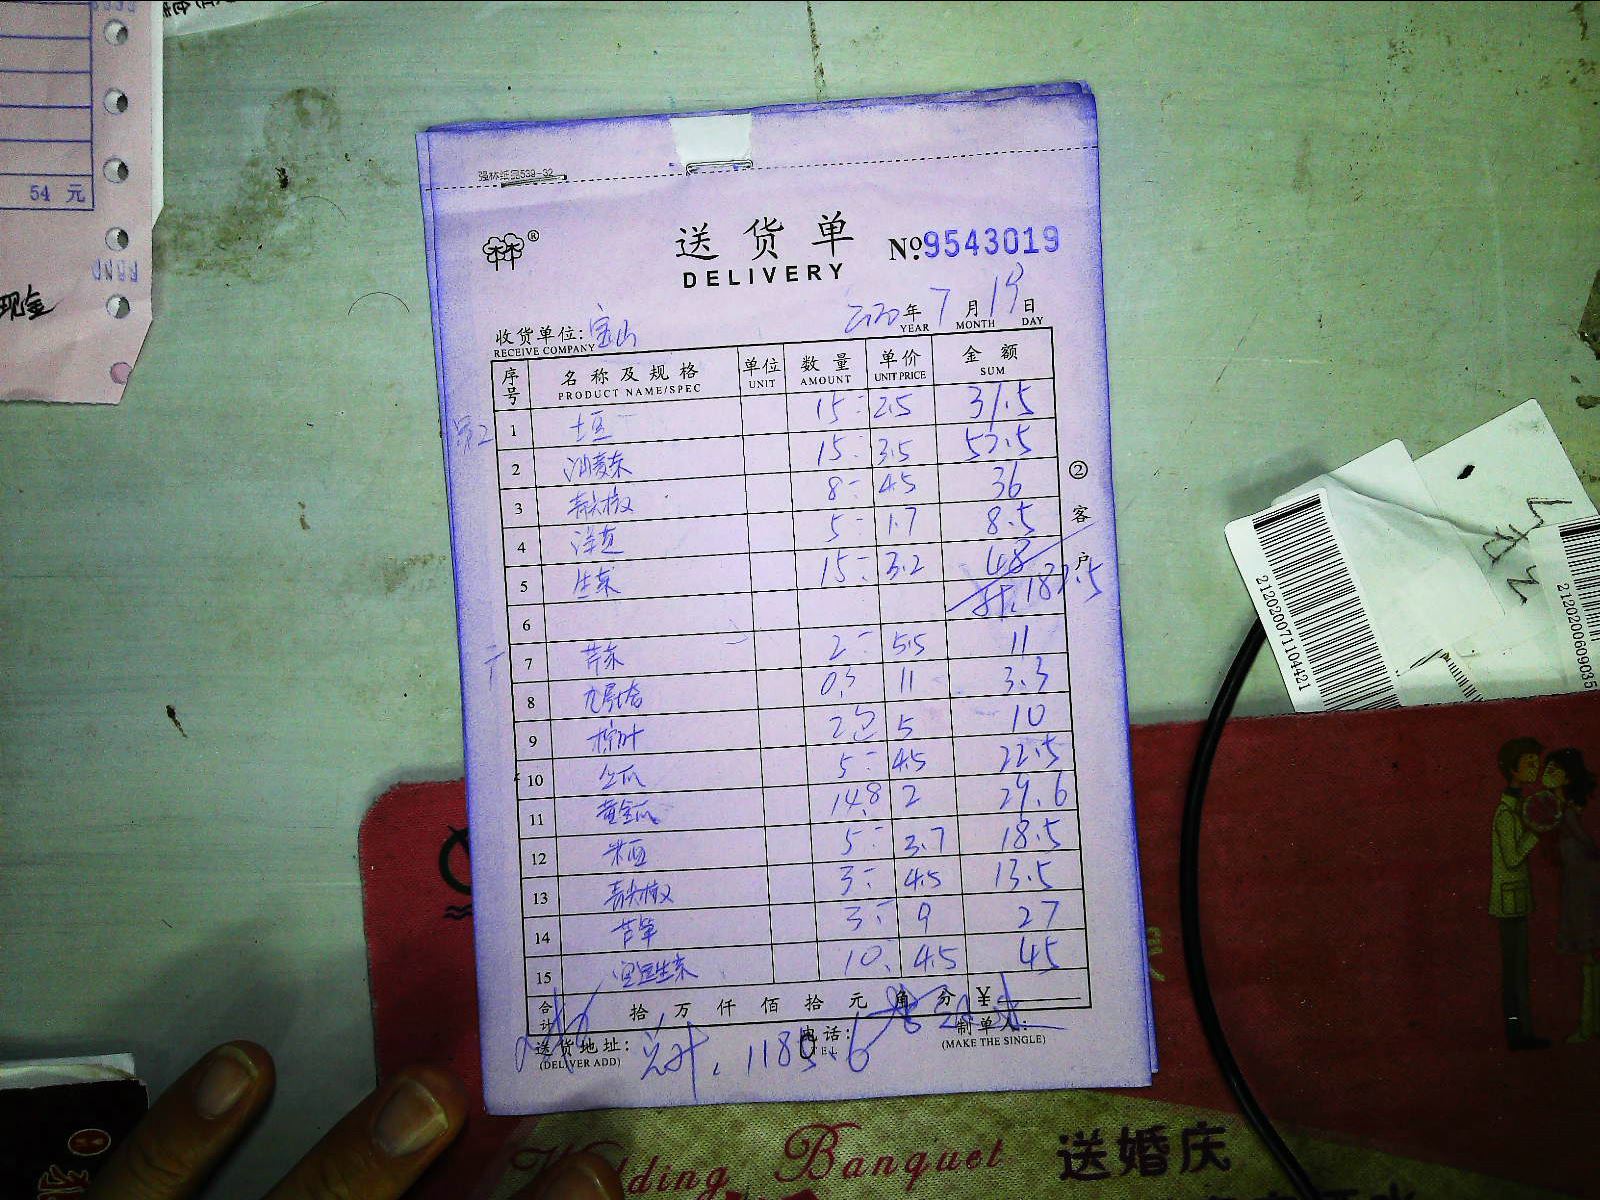 54 元
现金
强林纸品539-32
送货单
DELIVERY
No.9543019
2020年 7 月 19 日
YEAR MONTH DAY
收货单位: 宝山
RECEIVE COMPANY
序号 名称及规格 单位 数量 单价 金额
PRODUCT NAME/SPEC UNIT AMOUNT UNIT PRICE SUM
1 土豆 15 2.5 37.5
2 油麦菜 15 3.5 52.5
3 青尖椒 8 4.5 36
4 洋葱 5 1.7 8.5
5 生菜 15 3.2 48
6 182.5
7 芹菜 2 5.5 11
8 九层塔 0.3 11 3.3
9 柠叶 2包 5 10
10 仝瓜 5 4.5 22.5
11 黄金瓜 14.8 2 29.6
12 米豆 5 3.7 18.5
13 青尖椒 3 4.5 13.5
14 芦笋 3 9 27
15 生菜 10 4.5 45
② 客户
合计 拾 万 仟 佰 拾 元 角 分 ¥
送货地址: 电话: 制单人:
(DELIVER ADD) TEL (MAKE THE SINGLE)
总计, 1185.6
212020071104421
2120200609035
Wedding Banquet 送婚庆